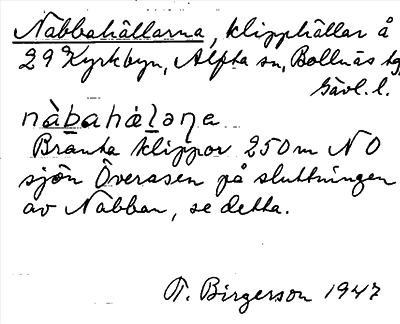 Nabbahällarna, klipphällar å
29 Kyrkbyn, Alfta sn, Bollnäs tg,
Gävl. l.
nàbahàləɳa
Branta klippor 250 m NO
sjön Överasen på sluttningen
av Nabban, se detta.
T. Birgerson 1947